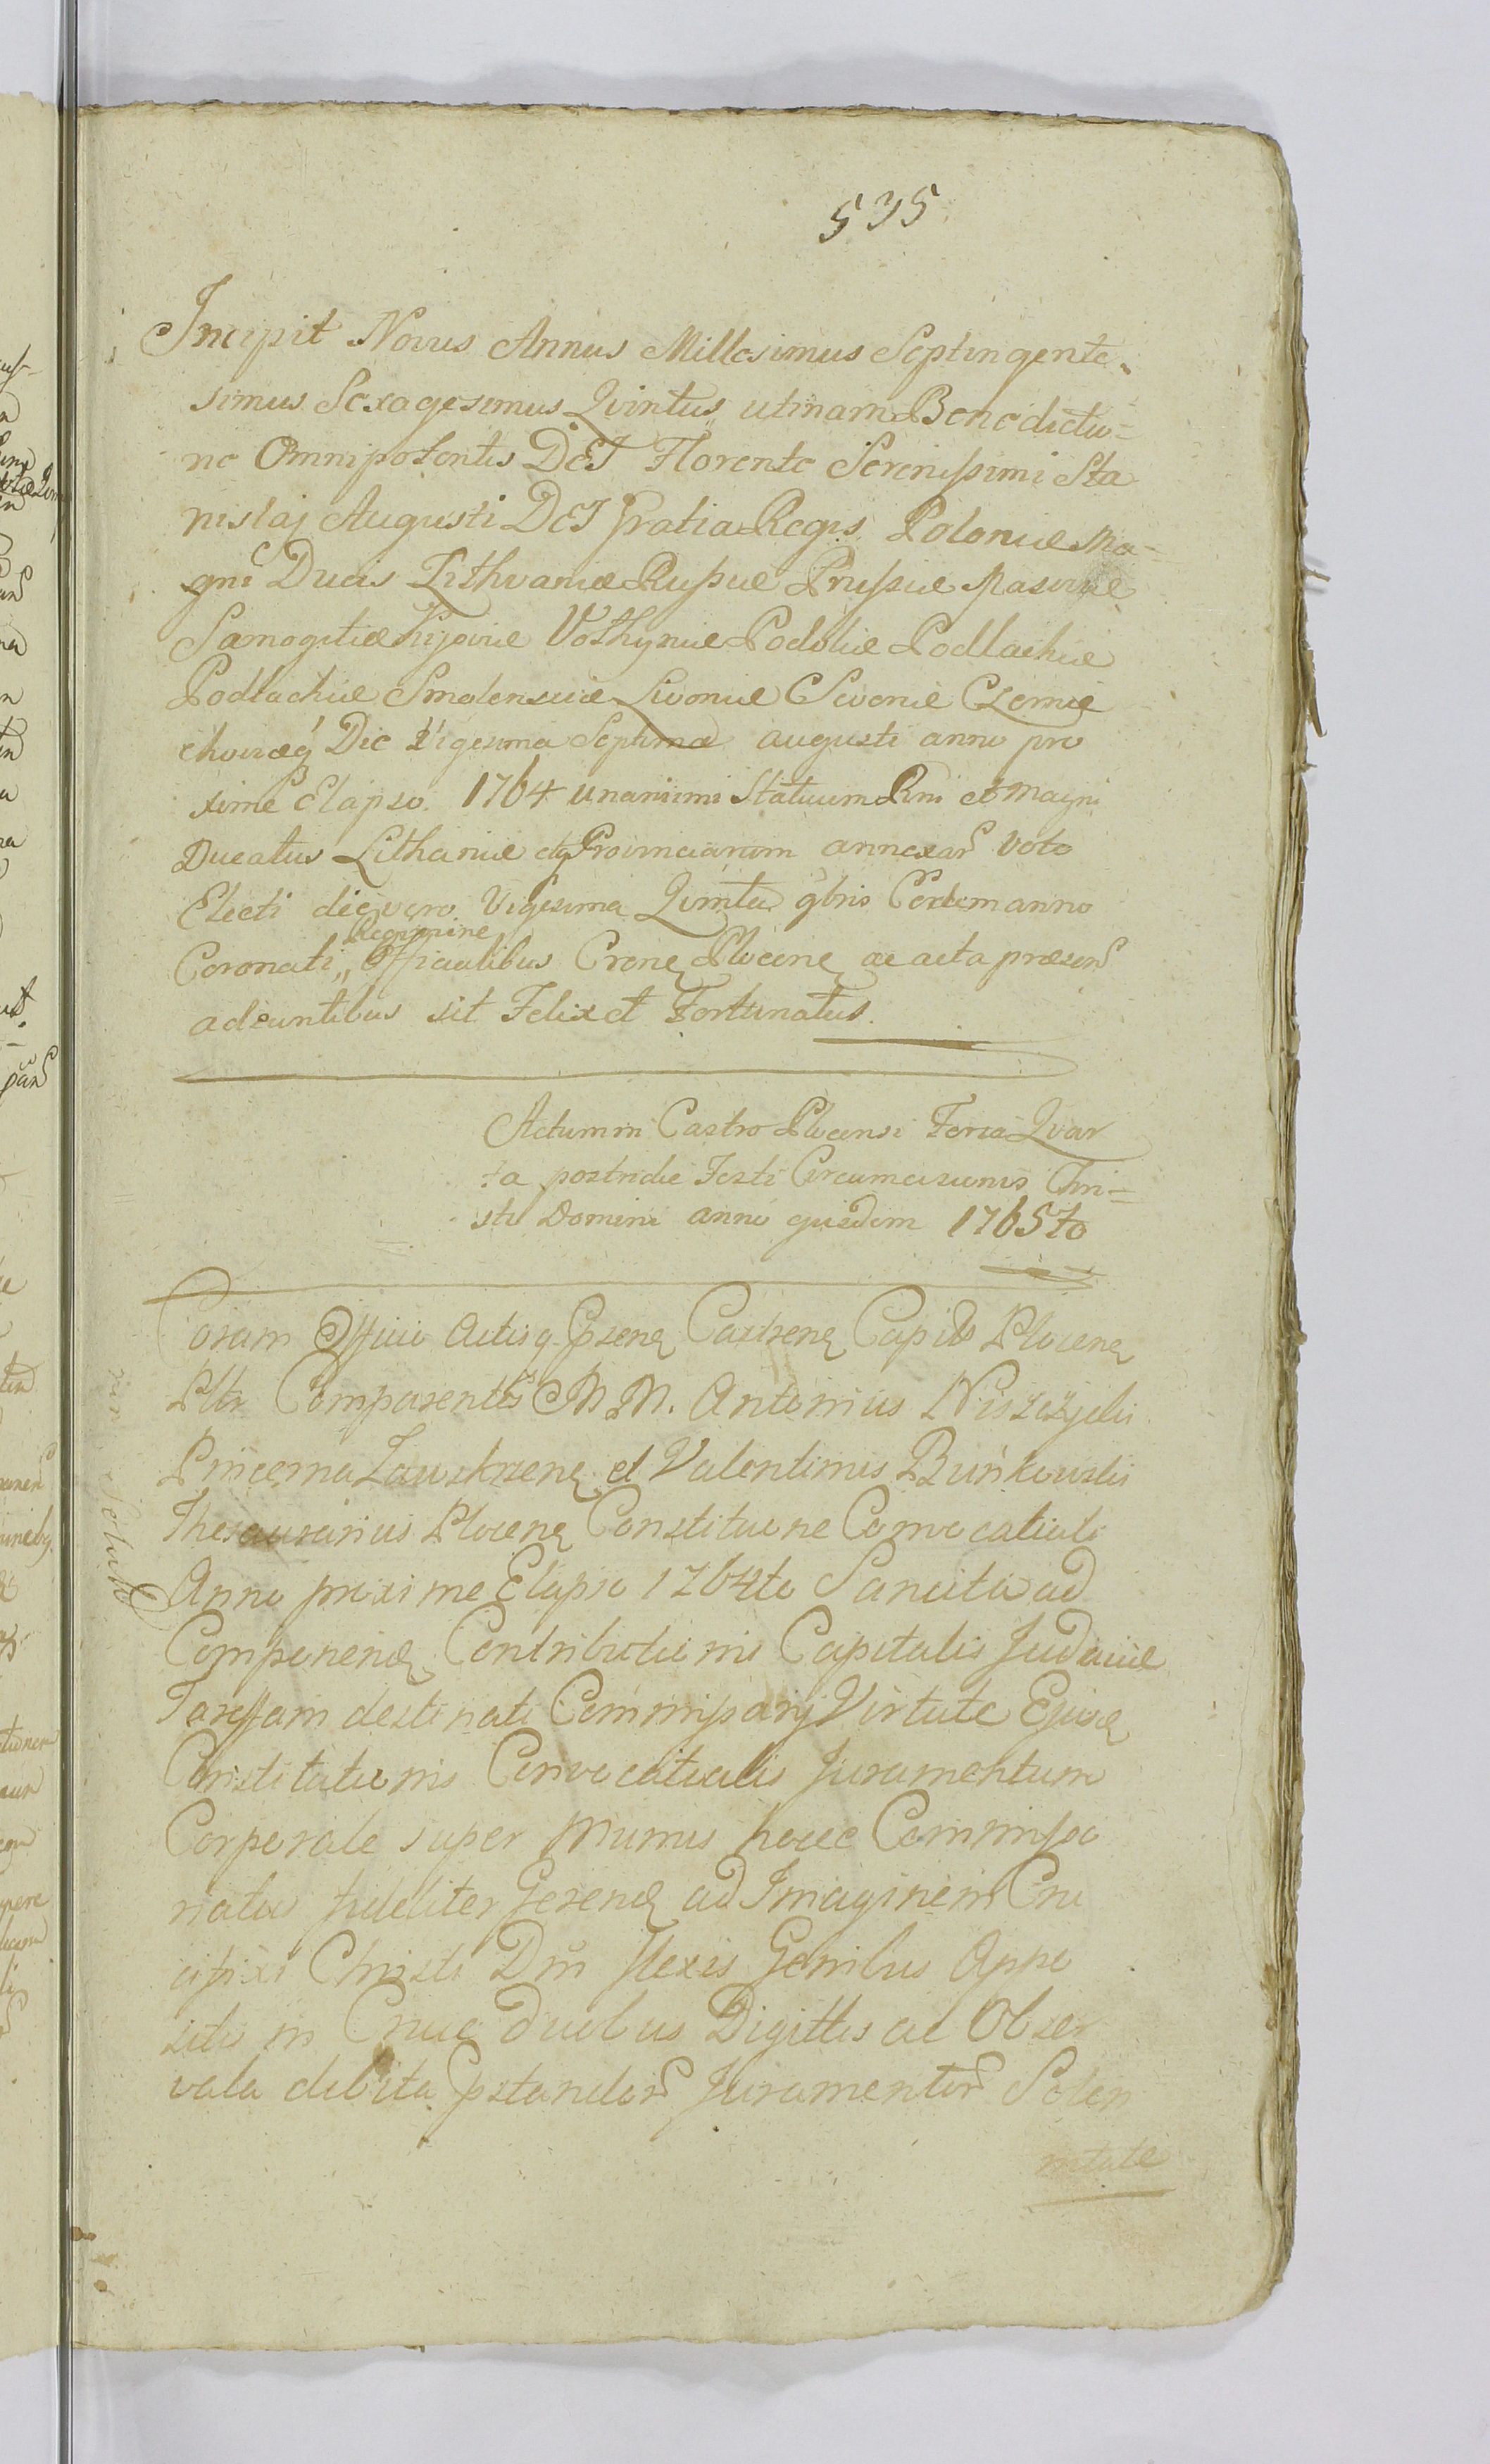 535
Incipit Novus Annus Millesimus Septingente-
simus Sexagesimus Qvintus utinam Benedictio=
ne Omnipotentis DEI Florente Serenissimi Sta
nislaj Augusti DEI gratia Regis Poloniæ Ma=
gni Ducis Lithvaniæ Russiæ Prussiæ Masoviæ
Samogitiæ Kijoviæ Volhyniæ Podoliæ Podlachiæ
Podlachiæ Smolensciæ Livoniæ Severiæ Czernie
choviæq Die Vigesima Septima augusti anno pro
xime Elapso 1764 unanimi Statuum Rni et Magni
Ducatus Lithaniæ etq Provinciarum annexar voto
Electi die vero Vigesima Qvinta 9bris Eodem anno
Regimine
Coronati,, Officialibus Crenę Plocenę ac acta præsen
adeuntibus sit Felix et Fortunatus.
Actum in Castro Plocensi Feria Qvar
ta postridie Festi Circumcisionis Chri=
sti Domini anno ejusdem 1765to
Coram Officio Actisq Psenę Castrenę Capitli Plocenę
Pltr Comparentes M M. Antonius Niszczycki
Pincerna Zawskrzenę et Valentinus Bunkowski
Thesaurarius Plocenę Constitutione Convocatiali
Anno proxime Elapso 1764to Sancita ad
Componendę Contributionis Capitalis Judaicæ
Tareffam destinati Commissarij Virtute Ejusdę
Constitutionis Convocatialis Juramentum
Corporale super Munus hocce Commisso
riatus fideliter Gerendę ad Imaginem Cru
cifixi Christi Dni flexis Genibus Appo
sitis in Cruce duobus Digittis ac Obser
vata debita Pstandor Juramentor Solen
nitate